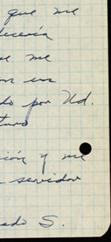 que me
decería
e me
en
do por Ud.
turo
ción y me
servidor
do S.